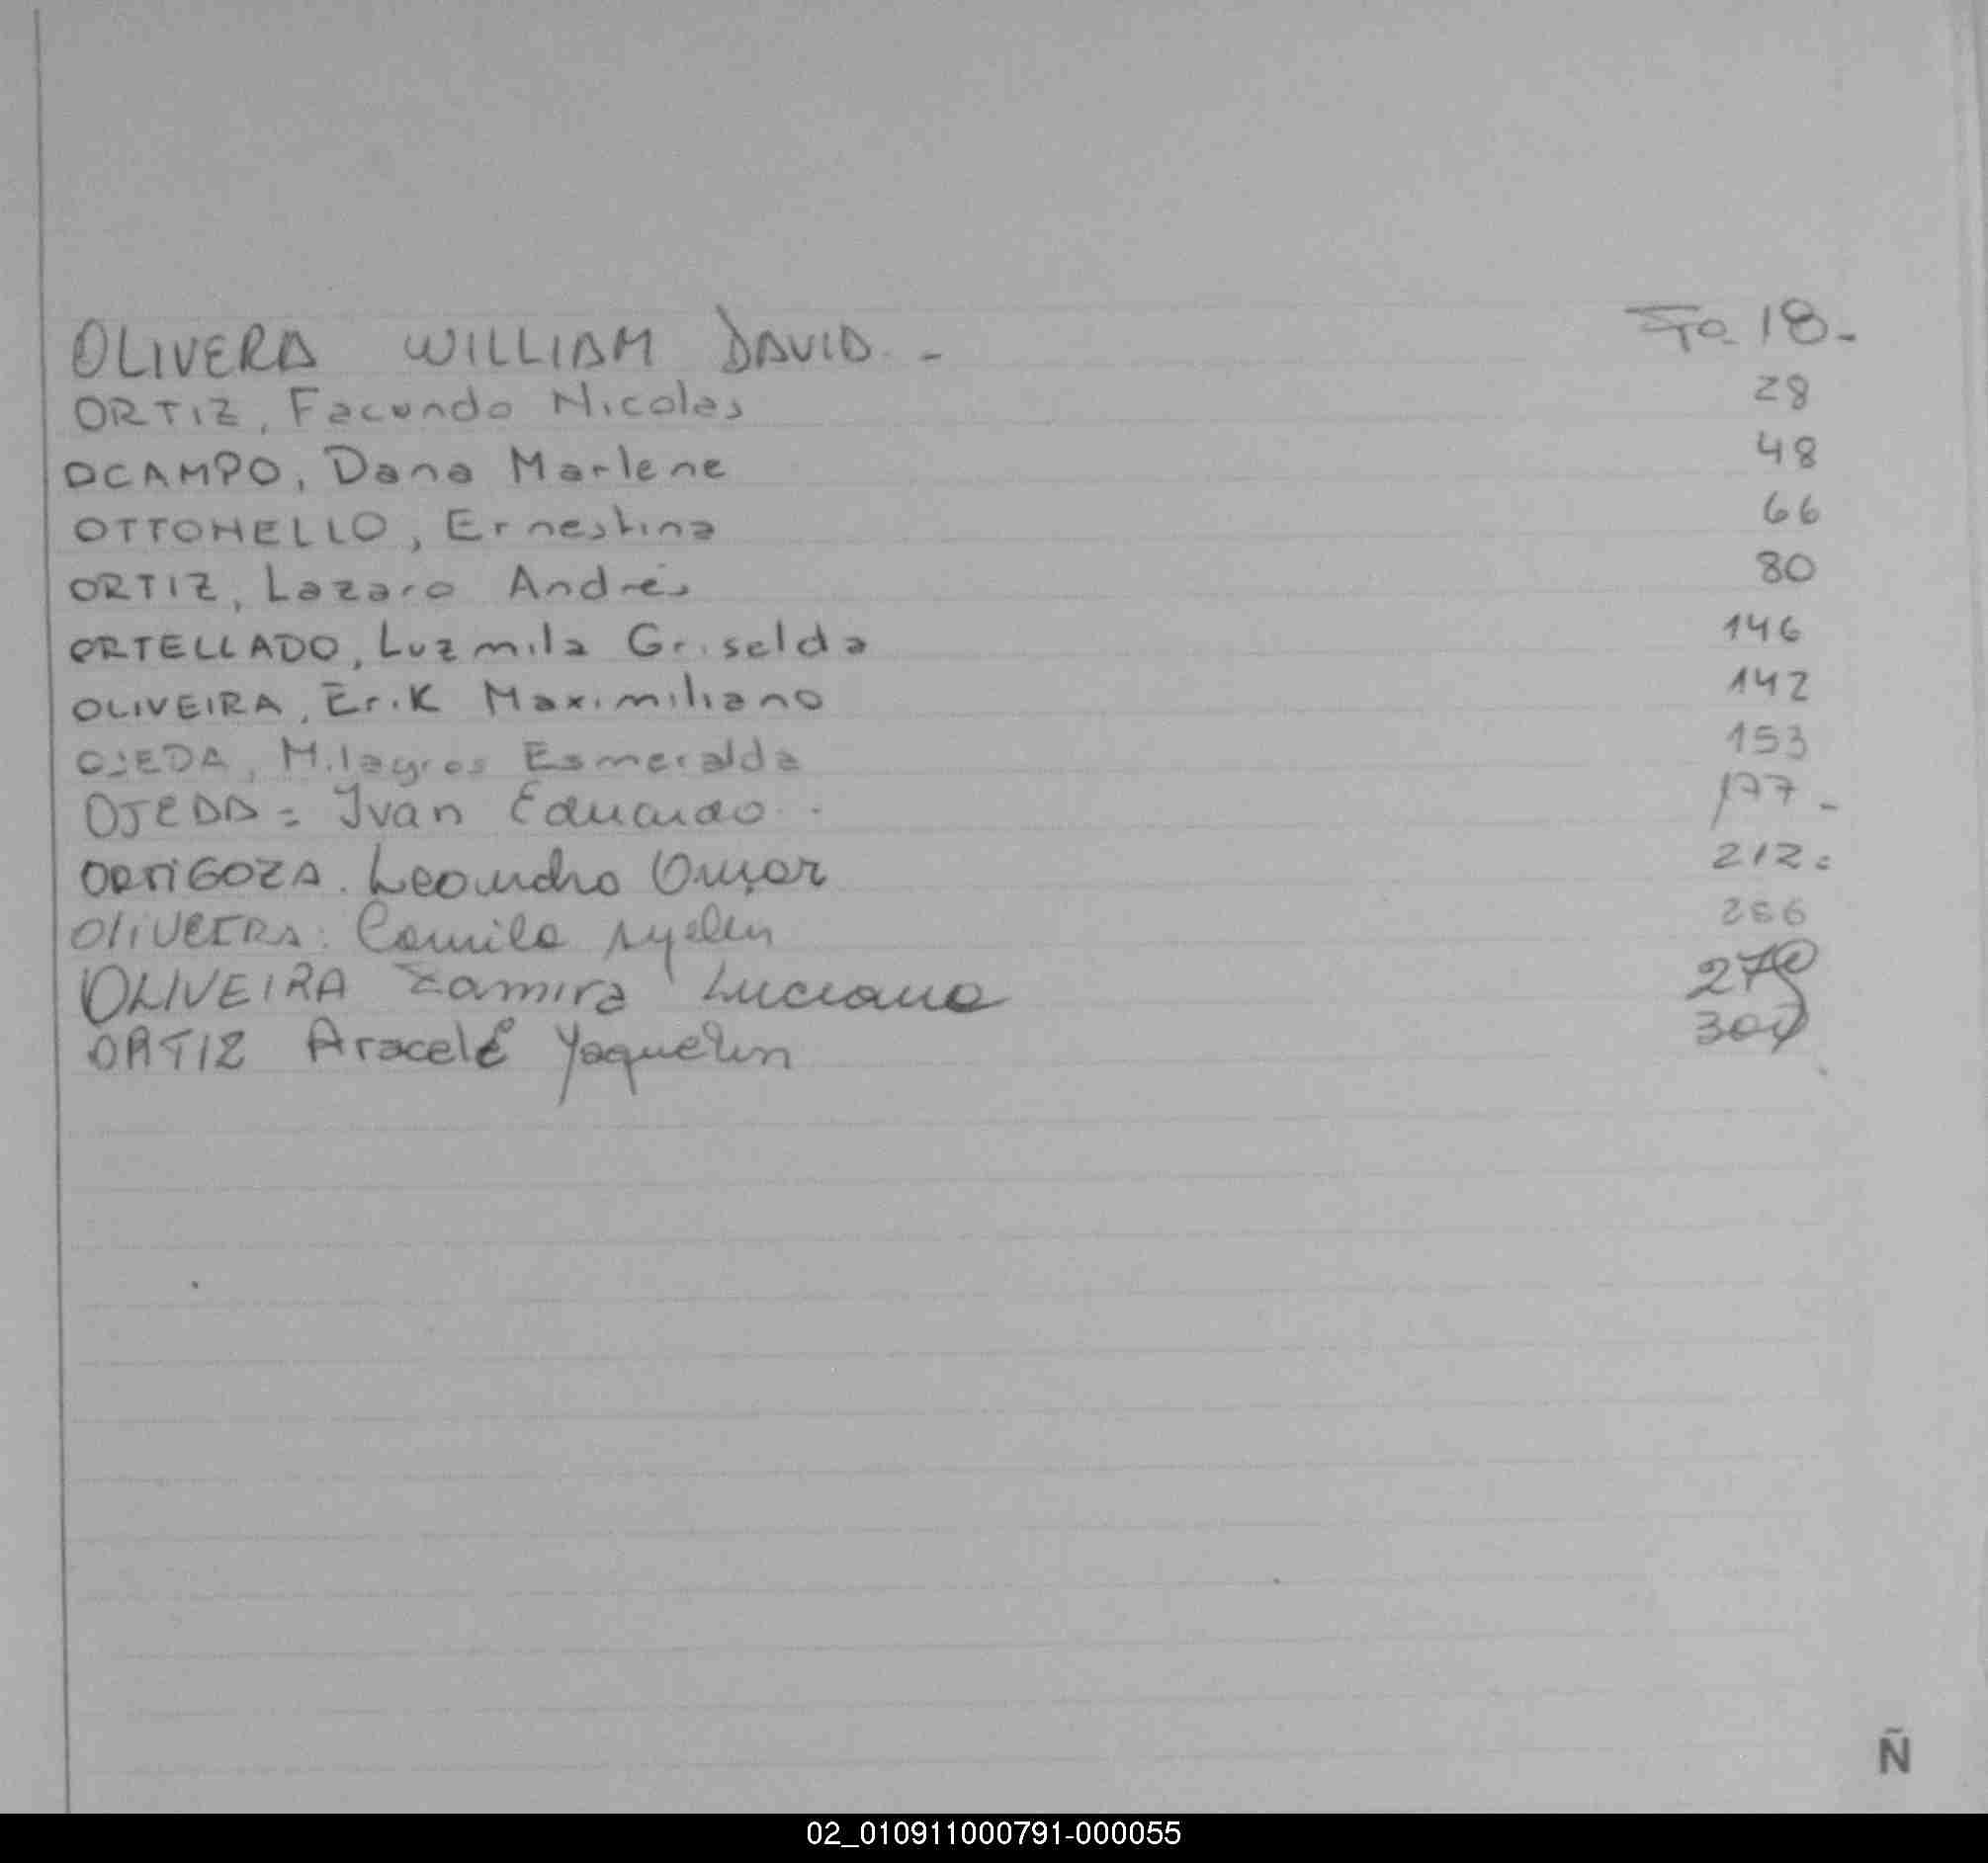 OLIVERA WILLIAM DAVID. - Fo 18.-
ORTIZ, Facundo Nicolas 28
OCAMPO, Dana Marlene 48
OTTONELLO, Ernestina 66
ORTIZ, Lazaro Andrés 80
ORTELLADO, Luzmila Griselda 146
OLIVEIRA, Erik Maximiliano 142
OJEDA, Milagros Esmeralda 153
OJEDA = Ivan Eduardo.. 177-
ORTIGOZA. Leandro Omar 212=
OLIVEIRA: Camila Ayelen
OLIVEIRA Zamira Luciana
ORTIZ Araceli Yaquelin
Ñ
02_010911000791-000055